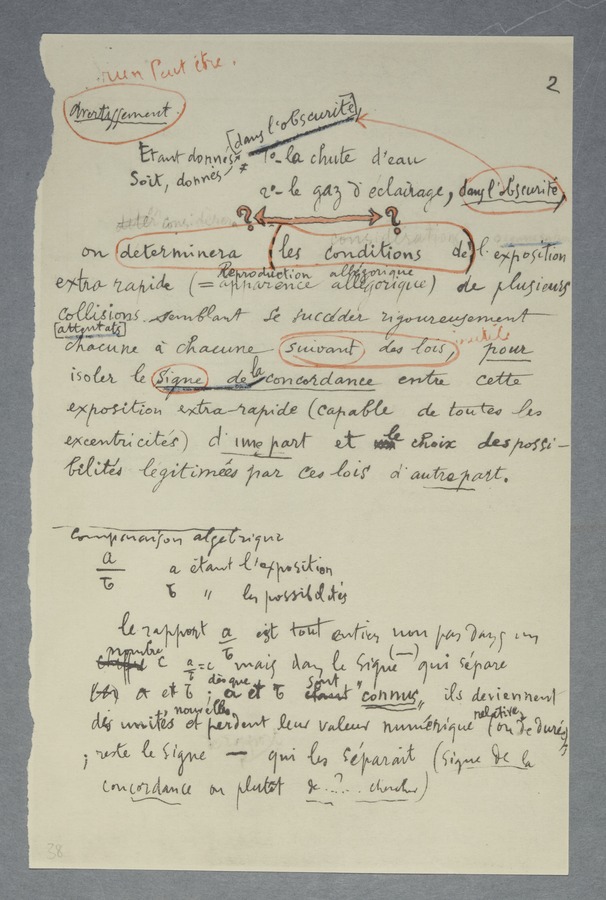 rien Peut être.
2
Avertissement.
[dans l'obscurité]
Etant donnés 1º- la chute d'eau
Soit, donnés
2º- le gaz d'éclairage, dans l'obscurité,
? ?
on determinera les conditions de l'exposition
Reproduction allégorique
extra rapide (= apparence allégorique) de plusieurs
collisions semblant se succéder rigoureusement
[attentats]
chacune à chacune suivant des lois, pour
isoler le Signe de la concordance entre cette
exposition extra-rapide (capable de toutes les
excentricités) d'une part et le choix des possi-
bilités légitimées par ces lois d'autre part.
Comparaison algébrique
a/b a étant l'exposition
b " les possibilités
le rapport a/b est tout entier non pas dans un
nombre c a/b = c mais dans le Signe (—) qui sépare
a et b ; dès que a et b sont "connus" ils deviennent
des unités nouvelles et perdent leur valeur numérique relative (ou de durée)
; reste le Signe — qui les séparait (Signe de la
concordance ou plutôt de ...?... chercher)
38